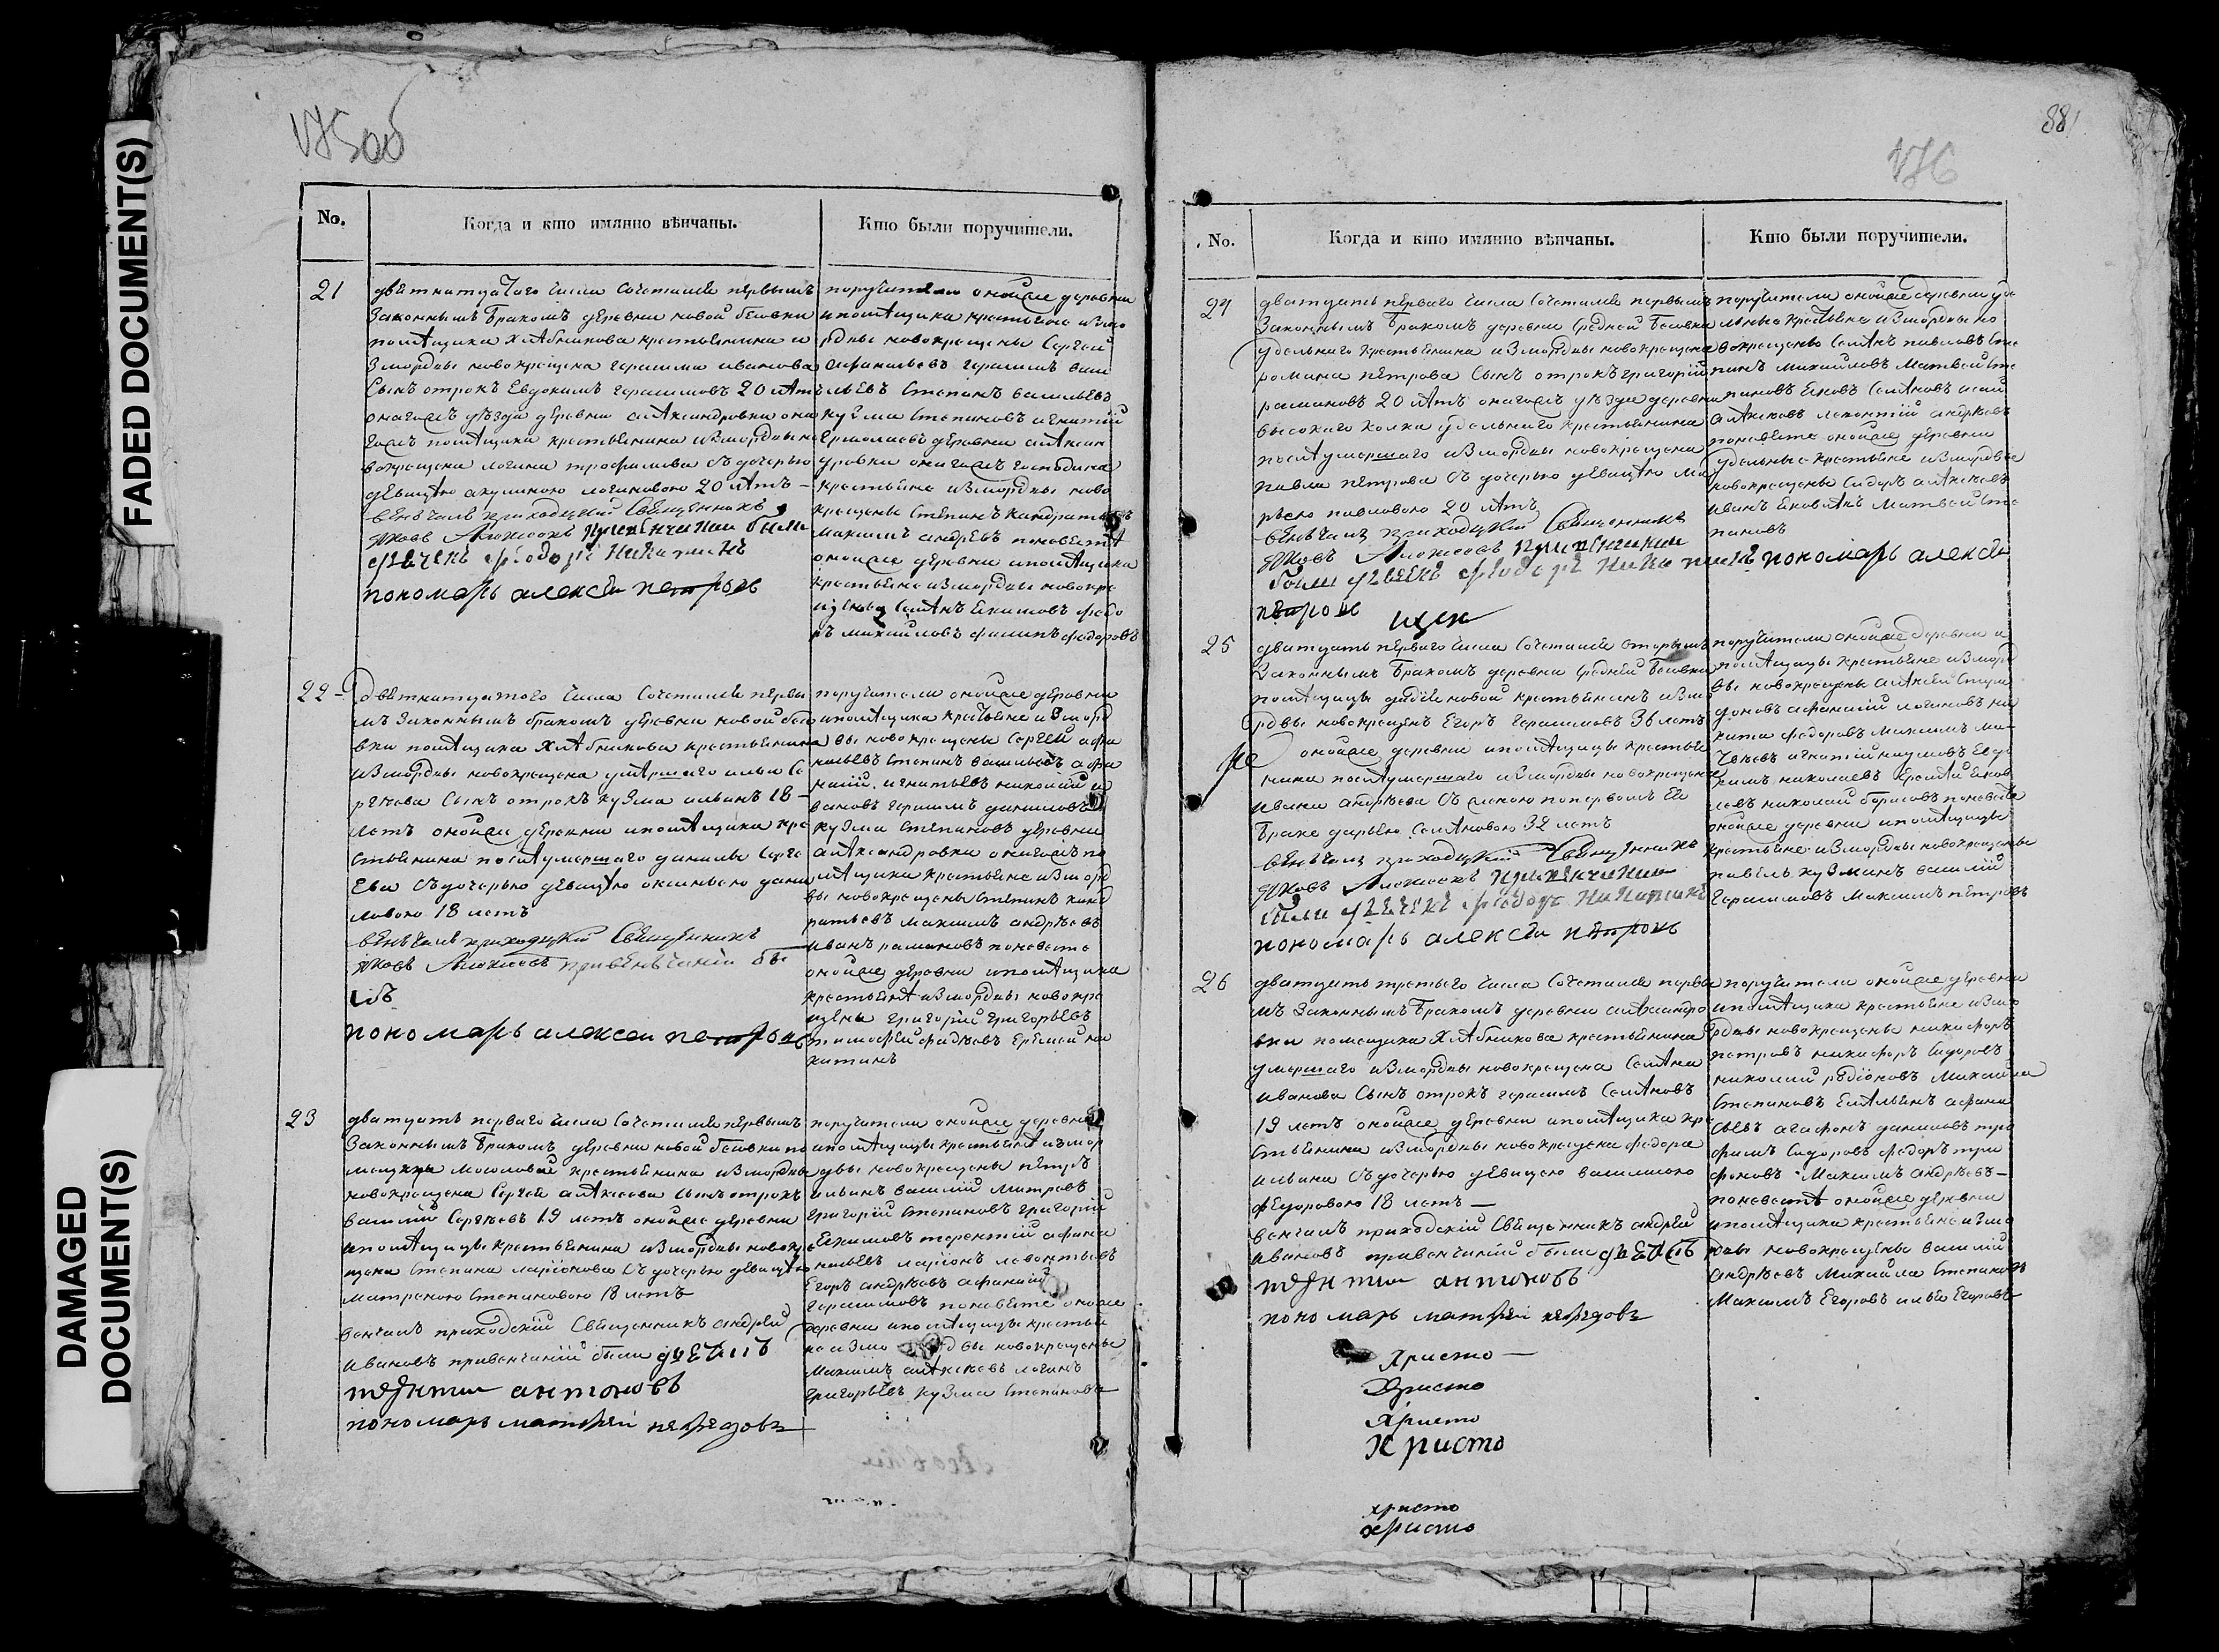 175об
No.
Когда и кто имянно вѣнчаны.
Кто были поручители.
21
двѣтнатцатого числа сочетался первымъ
Законнымъ бракомъ деревни новой бесовки
помѣщика хлѣбникова крестьянина и
змордвы новокрещена герасима иванова
Сынъ отрокъ Евдокимъ герасимовъ 20 лѣтъ
онагожъ уѣзда деревни алѣксандровки она
гожъ помѣщика крестьянина измордвы но
вокрещена логина трофимова съ дочерью
девицею акулиною логиновою 20 лѣтъ –
венчалъ приходцкий Священникъ
Яковъ Алексеевъ при венчании были
дьячекъ федоръ никитинъ
пономарь алексеи петровъ
поручители оной же деревни
и помѣщика крестьяне измо
рдвы новокрещены Сергей
афанасьевъ герасимъ васи
льевъ Степанъ васильевъ
кузма Степановъ игнатий
Ермолаевъ деревни алѣксан
дровки онагожъ господина
крестьяне измордвы ново
крещены Степанъ кандратьевъ
максимъ андревъ поневестѣ
оной же деревни и помѣщика
крестьяне измордвы новокре
щены Семѣнъ Екимовъ федо
ръ михайловъ филипъ федоровъ
22
двѣтнатцатого числа сочетался первы
мъ законнымъ бракомъ деревни новой бесо
вки помѣщика хлѣбникова крестьянина
измордвы новокрещена умершаго ильи Се
ргеева Сынъ отрокъ кузма ильинъ 18 –
летъ оной же деревни и помѣщика кре
стьянина послѣ умершаго данилы Серге
ева съ дочерью девицею оксиньею дани
ловою 18 летъ
венчалъ приходцкий Священникъ
Яковъ Алексеевъ при венчании бы
лъ
пономарь алексеи петровъ
поручители оной же деревни
и помѣщика крестьяне измор
вы новокрещены Сергей афа
насьевъ Степанъ васильевъ афа
насий игнатьевъ николай и
вановъ герасимъ даниловъ
кузма Степановъ деревни
алѣксандровки онагожъ по
мѣщика крестьяне измор
вы новокрещены Степанъ канд
ратьевъ максимъ андрѣевъ
иванъ рамановъ поневесте
оной же деревни и помѣщика
крестьянѣ измордвы новокре
щены григорий григорьевъ
тимофей фадѣевъ Еремей ни
китинъ
23
дватцать перваго числа сочетался первымъ
Законнымъ бракомъ деревни новой бесовки по
мещицы мосоловой крестьянина измордвы
новокрещена Сергея алѣксеева Сынъ отрокъ
василий Сергѣевъ 19 летъ оной же деревни
и помѣщицы крестьянина измордвы новокре
щена Степана ларионова съ дочерью девицею
матреною Степановою 18 летъ
венчалъ приходский Священникъ андрей
ивановъ привенчании были дьячекъ
терентии антоновъ
пономарь матвей
поручители оной же деревни
и помѣщицы крестьянѣ измор
двы новокрещены пѣтръ
ильинъ василий митровъ
григорий Степановъ григорий
Екимовъ терентий афана
сьевъ ларионъ левонтьевъ
Егоръ андрѣевъ афанасий
герасимовъ поневѣсте оной же
деревни и помѣщицы крестья
не измо двы новокрещены
Максимъ алѣксѣевъ логинъ
григорьевъ кузма Степановъ
881
176
No.
Когда и кто имянно вѣнчаны.
Кто были поручители.
24
дватцать перваго числа сочетался первымъ
Законнымъ бракомъ деревни Средней бесовки
удельнаго крестьянина измордвы новокрещена
романа пѣтрова Сынъ отрокъ григорий
рамановъ 20 лѣтъ онагожъ уѣзда деревни
высокаго колка удельнаго крестьянина
послѣ умершаго измордвы новокрещена
павла пѣтрова съ дочерью девицею ма
рьею павловою 20 лѣтъ
венчалъ приходцкий Священникъ
Яковъ Алексеевъ при венчании
были дьячекъ федоръ никитинъ пономарь алексеи
петровъ
поручители оной же деревни уде
льныя крестьяне измордвы но
вокрещены Семѣнъ павловъ Сте
панъ михайловъ Матвей Сте
пановъ Яковъ Семѣновъ исай
Алѣксеевъ леконтий андрѣевъ
поневѣсте оной же деревни
удельные крестьяне измордвы
новокрещены Сидоръ алѣксеевъ
иванъ Яковлѣвъ Матвей Сте
пановъ
25
дватцать перваго числа сочетался вторымъ
Законнымъ бракомъ деревни Средней бесовки
помѣщицы крестьянинъ измо
рдвы новокрещенъ Егоръ герасимовъ 36 летъ
оной же деревни и помѣщицы крестья
нина послѣ умершаго измордвы новокрещена
ивана андрѣева съ женою по первомъ Ея
браке дарьею Семѣновою 32 летъ
венчалъ приходцкий Священникъ
Яковъ Алексеевъ при венчании
были дьячекъ федоръ никитинъ
пономарь алексеи петровъ
поручители оной же деревни и
помѣщицы крестьяне измор
вы новокрещены алѣксей Спири
доновъ афанасий логиновъ ни
кита федоровъ максимъ ма
твѣевъ игнатий наумовъ Евдо
кимъ николаевъ
николай борисовъ поневесте
оной же деревни и помѣщицы
крестьяне измордвы новокрещены
павелъ кузминъ василий
герасимовъ максимъ пѣтровъ
26
дватцать третьяго числа сочетался первы
мъ Законнымъ бракомъ деревни алѣксандро
вки помещика хлѣбникова крестьянина
умершаго измордвы новокрещена Семѣна
иванова Сынъ отрокъ герасимъ Семѣновъ
19 летъ оной же деревни и помѣщика кре
стьянина измордвы новокрещена федора
ильина съ дочерью девицею василисою
федоровою 18 летъ –
венчалъ приходский Священникъ андрей
ивановъ привенчании были дьячекъ
терентии антоновъ
пономарь матвей
поручители оной же деревни
и помѣщика крестьяне измо
рдвы новокрещены никифоръ
петровъ никифоръ Сидоровъ
николай родионовъ михайла
Степановъ Емѣльянъ афана
сьевъ агафонъ даниловъ тро
фимъ Сидоровъ федоръ три
фоновъ Максимъ андрѣевъ –
поневестѣ оной же деревни
и помѣщика крестьяне измо
рдвы новокрещены василий
андрѣевъ Михайла Степановъ
Максимъ Егоровъ илья Егоровъ
Христо –
Христо
Христо
Христо
христо
христо
FADED DOCUMENT(S)
DAMAGED
DOCUMENT(S)